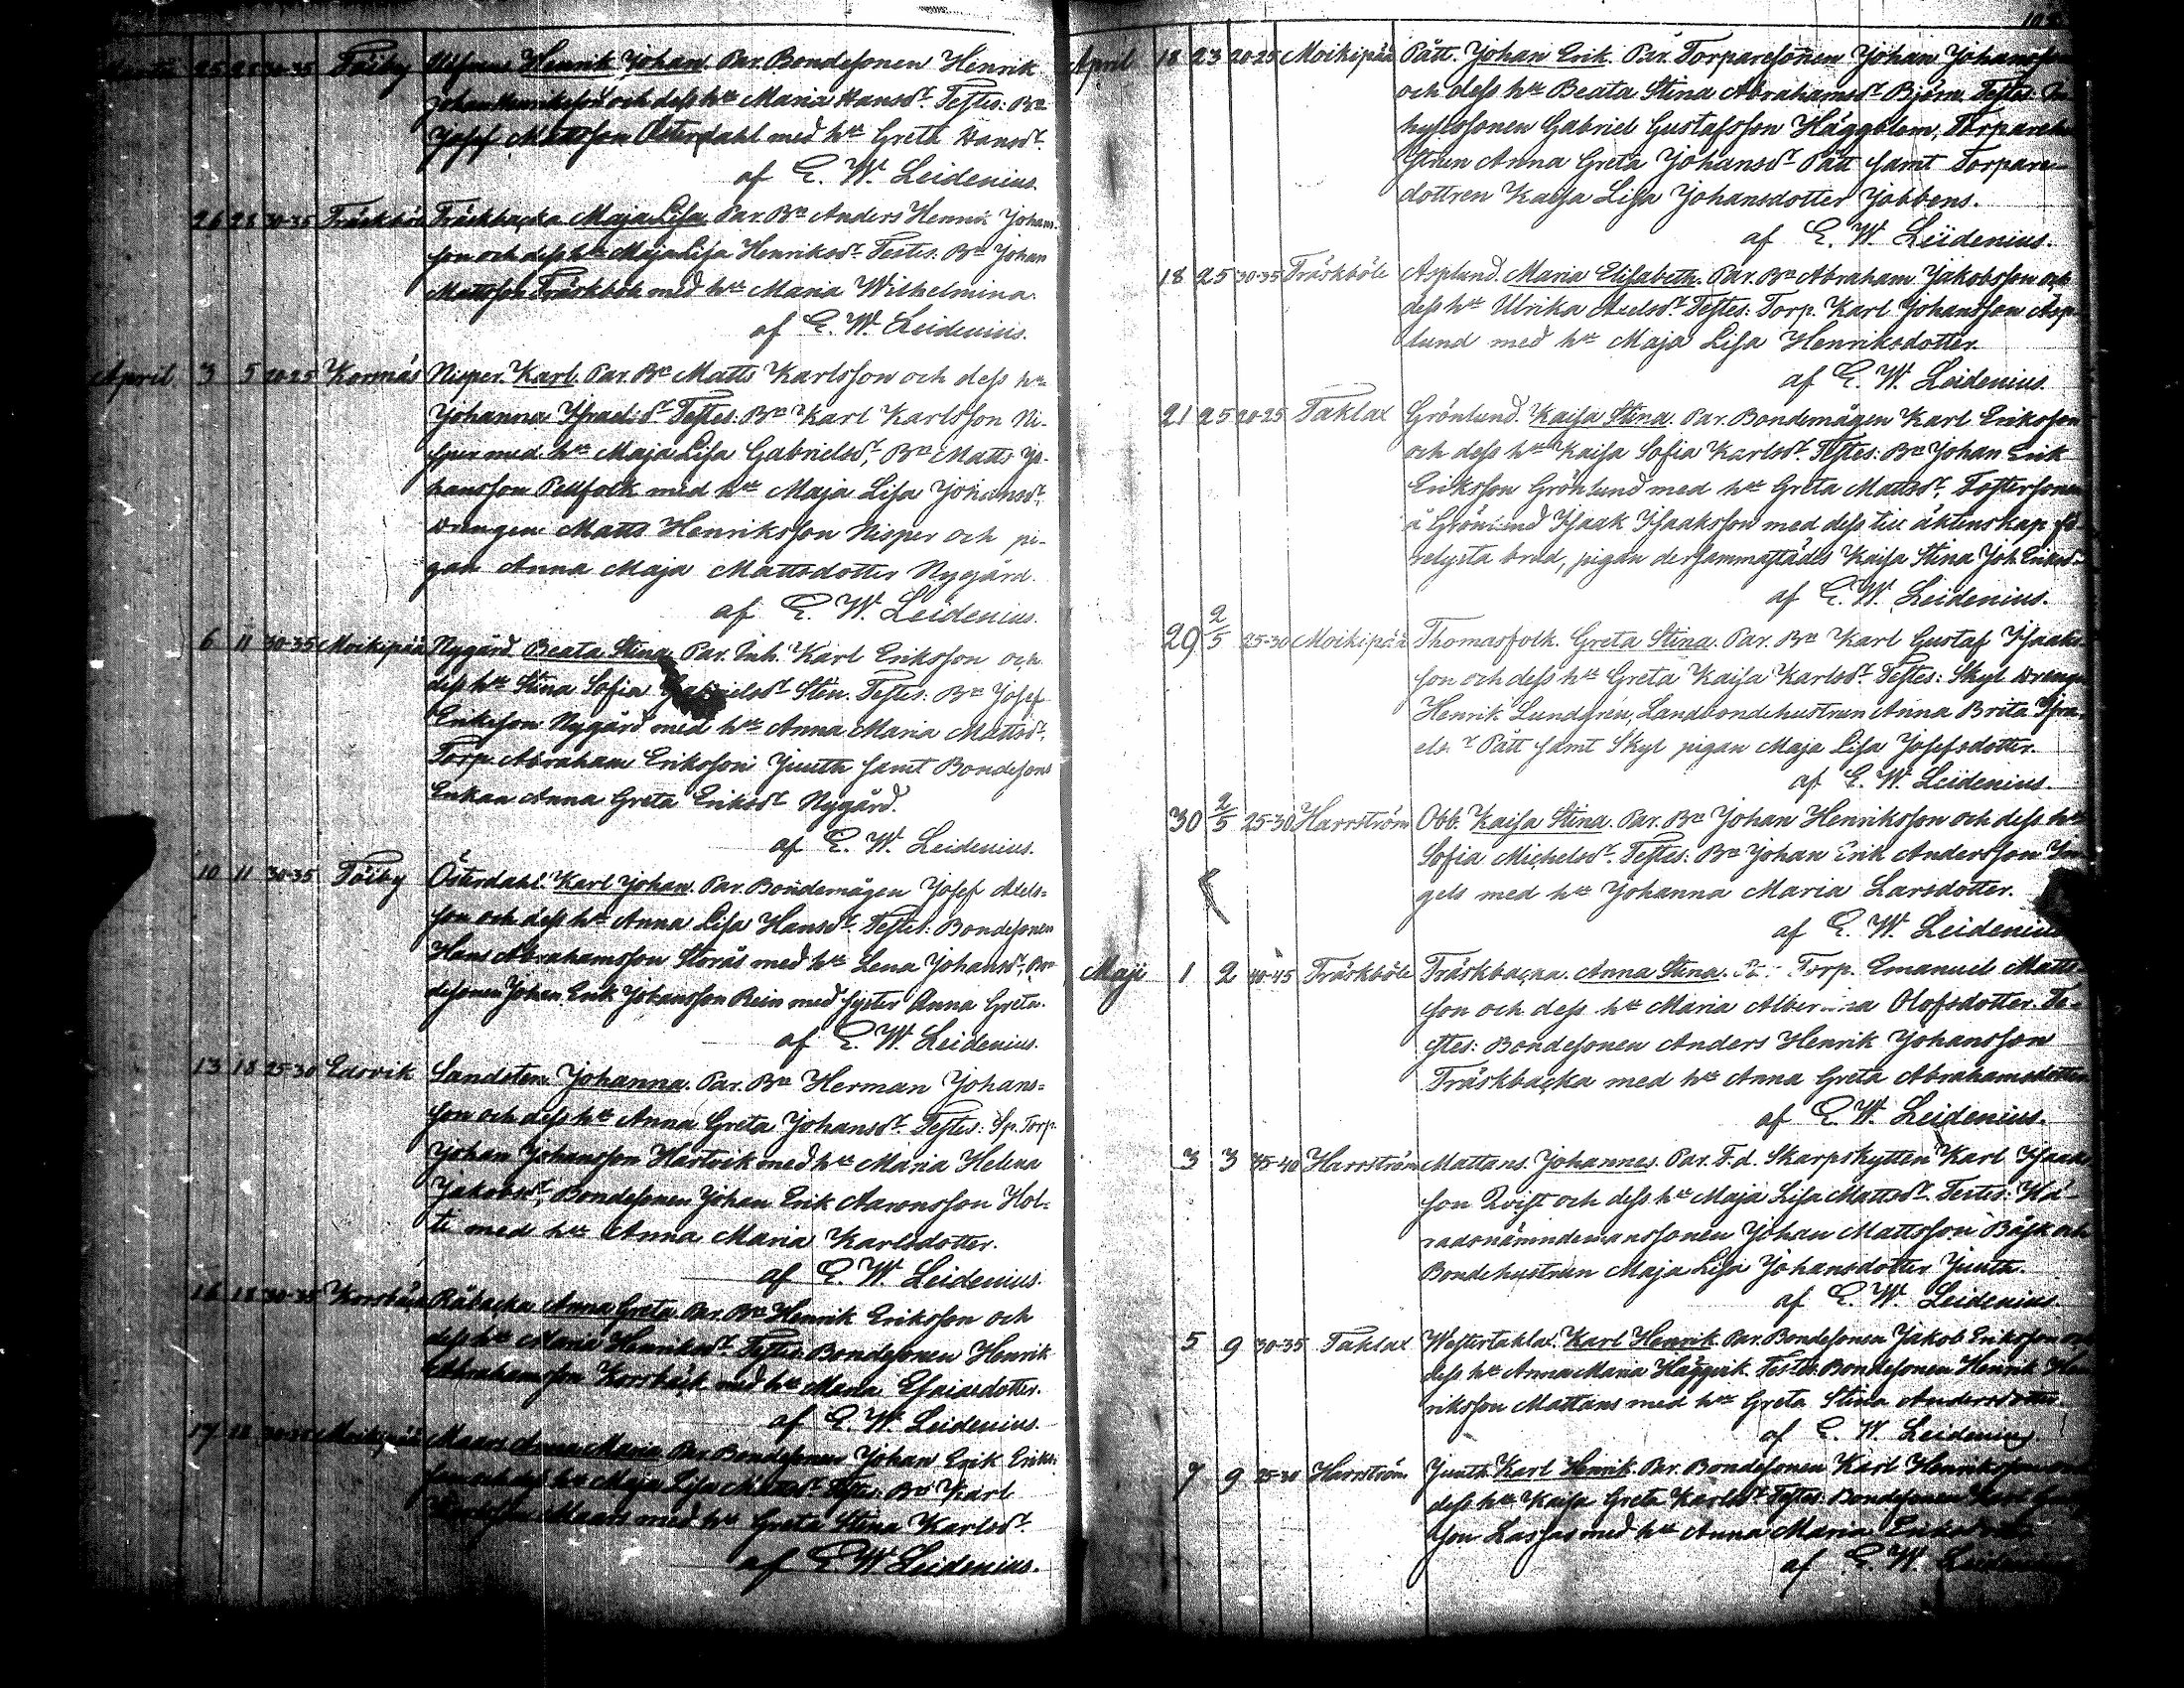 25 28 30-35 Töiby Ulfves Henrik Johan. Par. Bondesonen Henrik
Johan Henriksson och dess hu Maria Hansdr. Testes: Bn
Josef Mattsson Österdahl med hu Greta Hansdr.
af E. W. Leidenius.
26 28 30-35 Träskböle Träskbacka Maja Lisa Par. Bn Anders Henrik Johans-
son och dess hu Maja Lisa Henriksdr. Testes. Bn Johan
Mattsson Träskböle med hu Maria Wilhelmina.
af E. W. Leidenius.
April 3 5 20-25 Kornäs Nisper. Karl. Par. Bn Matts Karlsson och dess hu
Johanna Israel:dr Testes. Bn Karl Karlsson Ni-
sper med hu Maja Lisa Gabrielsdr, Bn Matts Jo-
hansson Pellfolk med hu Maja Lisa Johansdr,
drengen Matts Henriksson Nisper och pi-
gan Anna Maja Mattsdotter Nygård.
af E. W. Leidenius.
6 11 30-35 Moikipää Nygård Beata Stina Par. Inh. Karl Eriksson och
dess hu Stina Sofia Gabrielsdr Sten. Testes: Bn Josef
Eriksson Nygård med hu Anna Maria Mattsdr,
Torp. Abraham Eriksson Juuth samt Bondesons
Enkan Anna Greta Eriksdr Nygård.
af E. W. Leidenius.
10 11 30-35 Töiby Österdahl. Karl Johan. Par. Bondemågen Josef Axels-
son och dess hu Anna Lisa Hansdr. Testes: Bondesonen
Hans Abrahamsson Storås med hu Lena Johansdr, Bon-
desonen Johan Erik Johansson Rein med syster Anna Greta.
af E. W. Leidenius.
13 18 25-30 Edsvik Sandsten Johanna. Par. Bn Herman Johans-
son och dess hu Anna Greta Johansdr. Testes: Sp. Torp.
Johan Johansson Hartvik med hu Maria Helena
Jakobsdr, Bondesonen Johan Erik Aaronsson Hol-
ti med hu Anna Maria Karlsdotter.
af E. W. Leidenius.
16 18 30-35 Korsbäck Råbacka Anna Greta Par. Bn Henrik Eriksson och
dess hu Maria Henriksdr. Testes: Bondesonen Henrik
Abrahamsson Korsbäck med hu Maria Esaiasdotter.
af E. W. Leidenius.
17 18 Moikipää Maars Anna Maria Par. Bondesonen Johan Erik Eriks-
son och dess hu Maja Lisa Mattsdr Testes: Bn Karl
Karlsson Maars med hu Greta Stina Karlsdr.
af E. W. Leidenius.
April 18 23 20-25 Moikipää Pått. Johan Erik. Par. Torparesonen Johan Johansson
och dess hu Beata Stina Abrahamsdr Björn Testes: In-
hyssesonen Gabriel Gustafsson Häggblom, Torparehu-
strun Anna Greta Johansdr Pått samt Torpare-
dottren Kaisa Lisa Johansdotter Jobbens.
af E. W. Leidenius.
18 25 30-35 Träskböle Asplund. Maria Elisabeth. Par. Bn Abraham Jakobsson och
dess hu Ulrika Axelsdr. Testes: Torp. Karl Johansson Asp-
lund med hu Maja Lisa Henriksdotter.
af E. W. Leidenius.
21 25 20-25 Taklax Grönlund. Kaisa Stina. Par. Bondemågen Karl Eriksson
och dess hu Kaisa Sofia Karlsdr. Testes: Bn Johan Erik
Eriksson Grönlund med hu Greta Mattsdr, Fostersonen
å Grönlund Isaak Isaaksson med dess till äktenskap fö-
relysta brud, pigan dersammastädes Kaisa Stina Joh. Eriksdr.
af E. W. Leidenius.
29 2/5 25-30 Moikipää Thomasfolk. Greta Stina. Par. Bn Karl Gustaf Isaaks-
son och dess hu Greta Kaisa Karlsdr. Testes: Skyl. drengen
Henrik Lundgren, Landbondehustrun Anna Brita Isra-
els:dr Pått samt Skyl. pigan Maja Lisa Josefsdotter.
af E. W. Leidenius.
30 2/5 25-30 Harrström Obb. Kaisa Stina. Par. Bn Johan Henriksson och dess hu
Sofia Michelsdr. Testes: Bn Johan Erik Andersson In-
gels med hu Johanna Maria Larsdotter.
af E. W. Leidenius
Maji 1 2 40-45 Träskböle Träskbacka. Anna Stina. Torp. Emanuel Matts-
son och dess hu Maria Albertina Olofsdotter. Te-
stes: Bondesonen Anders Henrik Johansson
Träskbacka med hu Anna Greta Abrahamsdotter
af E. W. Leidenius.
3 3 35-40 Harrström Mattans. Johannes. Par. F.d. Skarpskytten Karl Isaaks-
son Qvist och dess hu Maja Lisa Mattsdr. Testes: Hä-
radsnämndemanssonen Johan Mattsson Båsk och
Bondehustrun Maja Lisa Johansdotter Juuth.
af E. W. Leidenius.
5 9 30-35 Taklax Westertaklax. Karl Henrik. Par. Bondesonen Jakob Eriksson och
dess hu Anna Maria Häggvik. Testes: Bondesonen Henrik Hen-
riksson Mattans med hu Greta Stina Andersdotter
af E. W. Leidenius
7 9 25-30 Harrström Juuth. Karl Henrik. Par. Bondesonen Karl Henriksson
dess hu Kaisa Greta Karlsdr Testes: Bondesonen
son Lassas med hu Anna Maria
af E. W. Leidenius